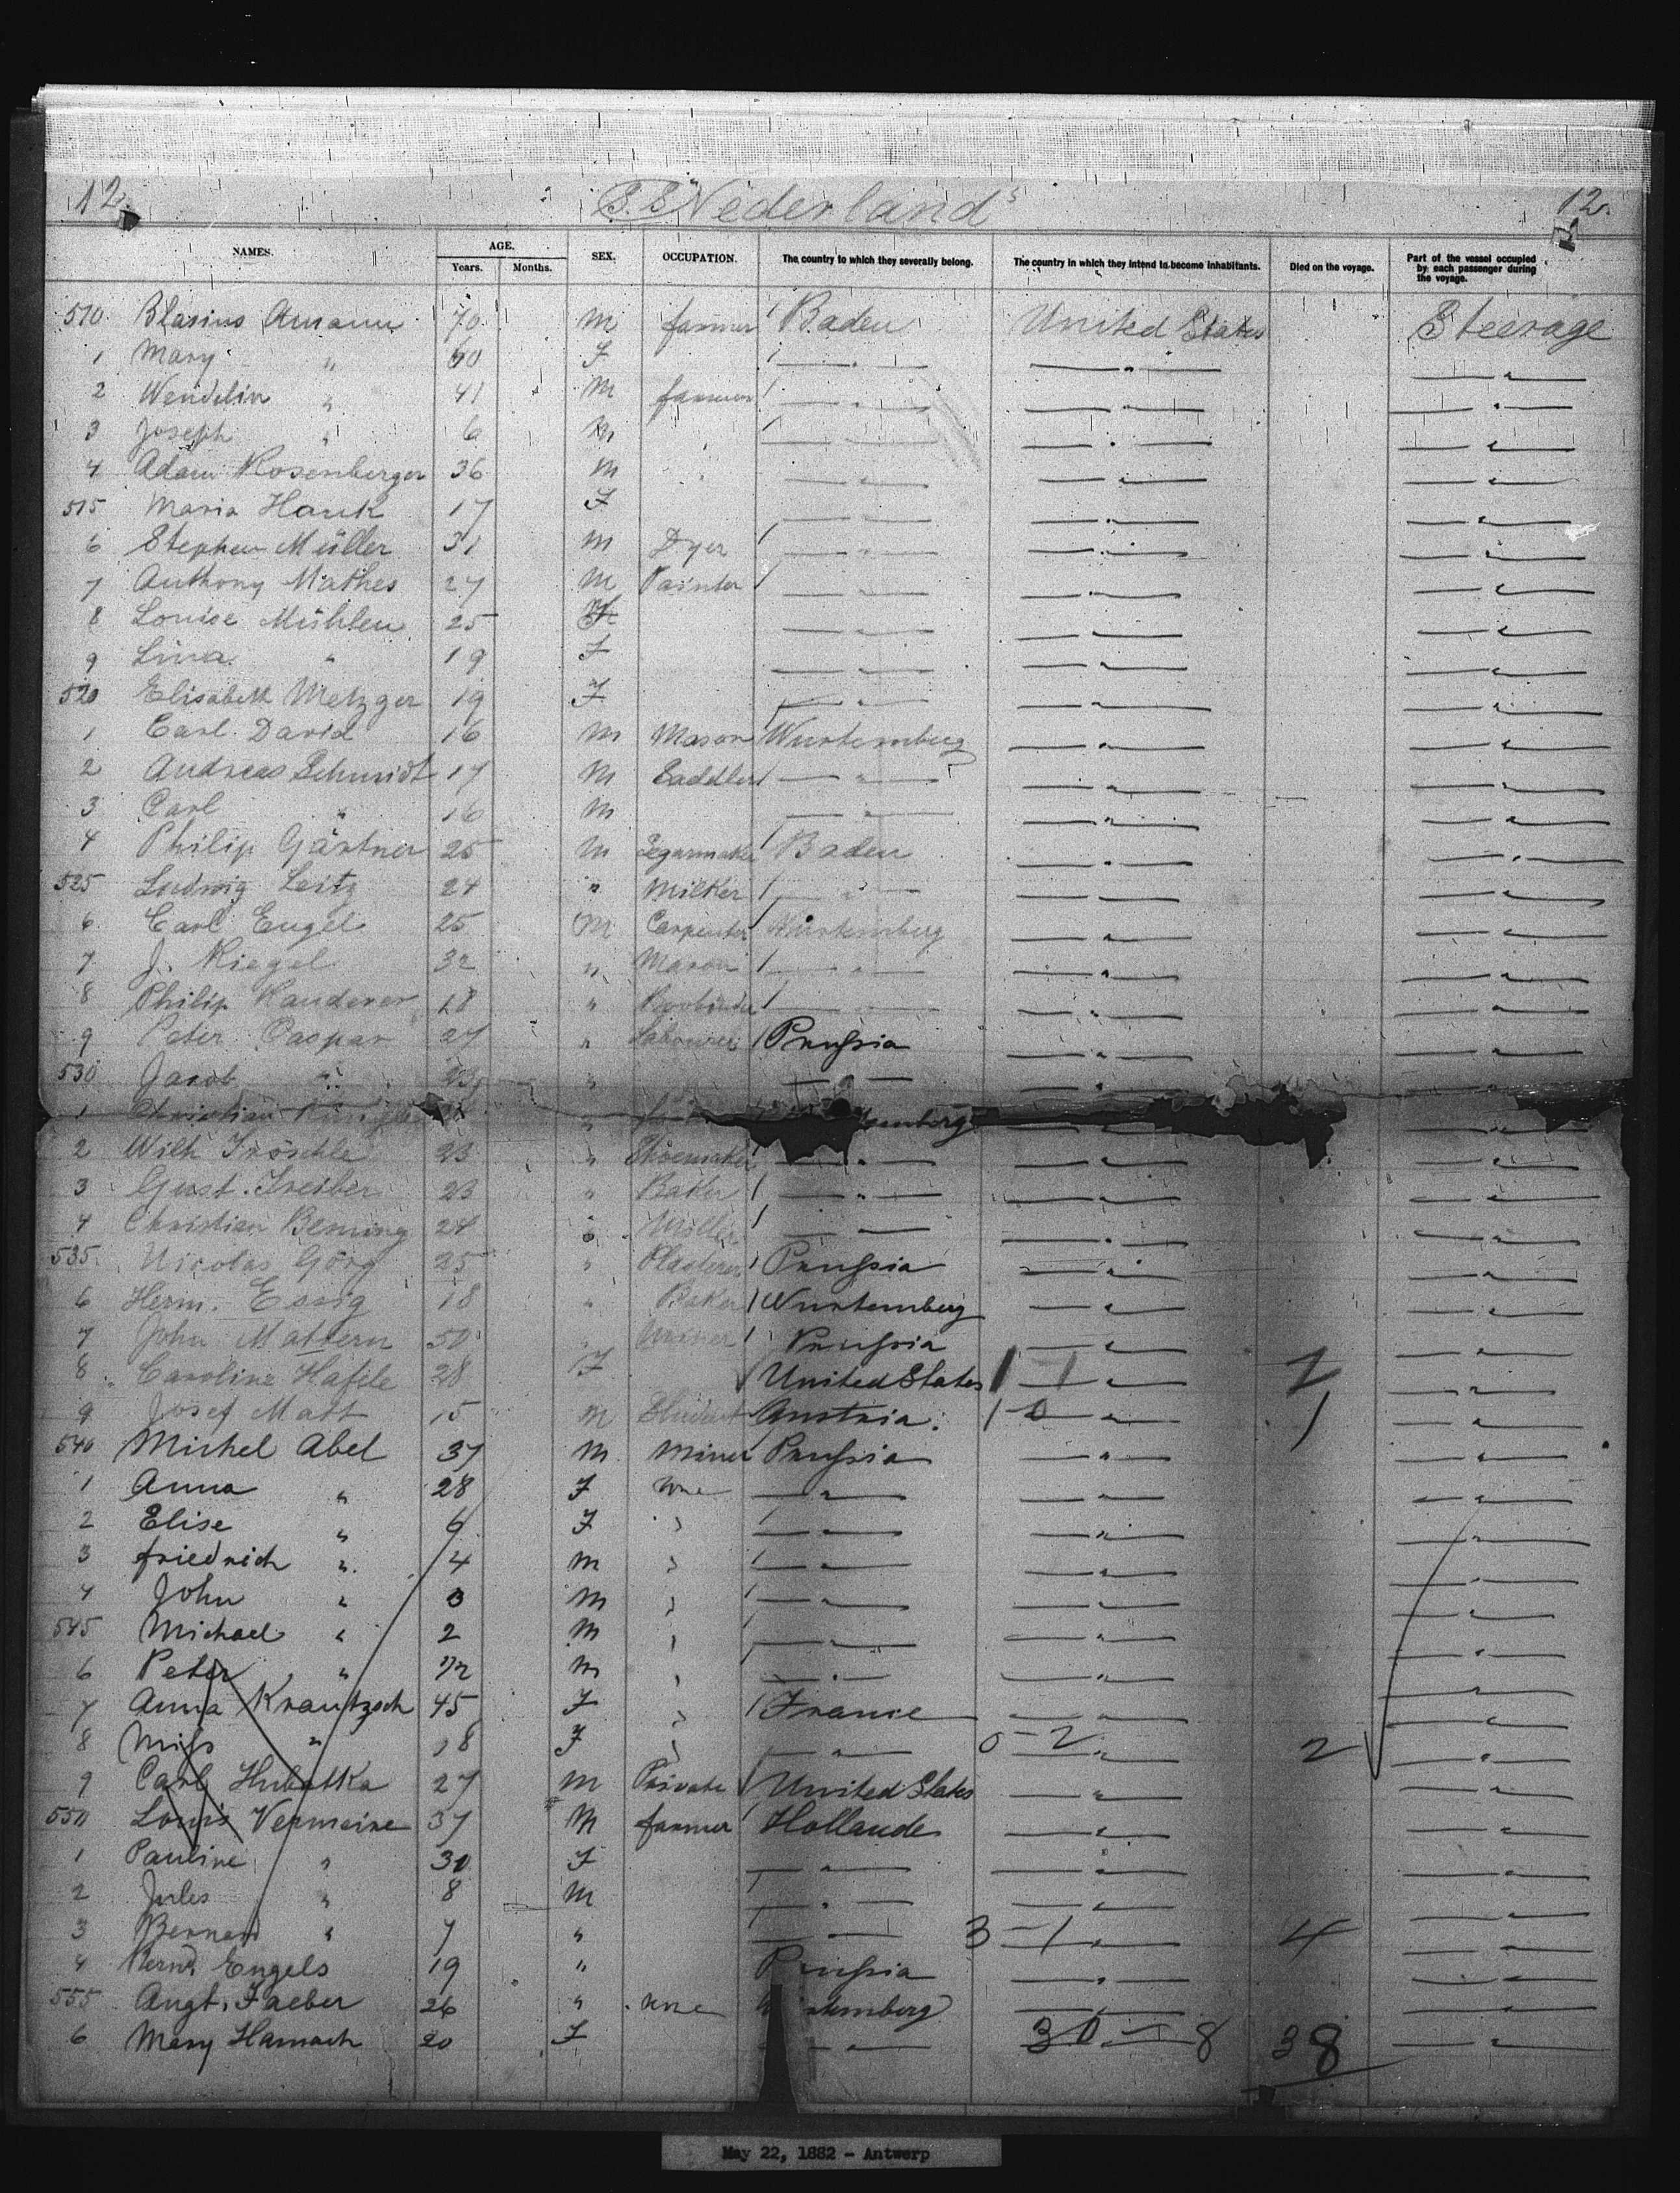 12. S.S. Nederland 12.
NAMES. AGE. SEX. OCCUPATION. The country to which they severally belong. The country in which they intend to become inhabitants. Died on the voyage. Part of the vessel occupied by each passenger during the voyage.
Years. Months.
510 Blasius Amann 70 M farmer Baden United States Steerage
1 Mary " 60 F — " — — " — — " —
2 Wendelin " 41 M farmer — " — — " — — " —
3 Joseph " 6 M — " — — " — — " —
4 Adam Rosenberger 36 M — " — — " — — " —
515 Maria Hauk 17 F — " — — " — — " —
6 Stephen Müller 31 M Dyer — " — — " — — " —
7 Anthony Mathes 27 M Painter — " — — " — — " —
8 Louise Mühlen 25 F — " — — " — — " —
9 Lina " 19 F — " — — " — — " —
520 Elisabeth Metzger 19 F — " — — " — — " —
1 Carl David 16 M Mason Wurtemberg — " — — " —
2 Andreas Schmidt 17 M Saddler — " — — " — — " —
3 Carl " 16 M — " — — " — — " —
4 Philip Gärtner 25 M Segarmaker Baden — " — — " —
525 Ludwig Leitz 24 " Milker — " — — " — — " —
6 Carl Engel 25 M Carpenter Wurtemberg — " — — " —
7 J. Riegel 32 " Mason — " — — " — — " —
8 Philip 18 " — " — — " — — " —
9 Peter Caspar 27 " Labourer Prussia — " — — " —
530 Jacob " 23 " — — — " — — " —
1 Christian " — " — — " —
2 Wilh Fröschle 23 " Shoemaker — " — — " — — " —
3 Gust. Treiber 23 " Baker — " — — " — — " —
4 Christian Bening 24 " Miller — — — " — — " —
535 Nicolas Görg 25 " Plasterer Prussia — " — — " —
6 Herm. Essig 18 " Baker Wurtemberg — " — — " —
7 John Mattern 50 " Miner Prussia — " — — " —
8 Caroline Hafele 28 F United States 1 — 1 " — 2 — " —
9 Josef Matt 15 M Student Austria. 1 - 0 — " — 1 — " —
540 Michel Abel 37 M Miner Prussia — " — — " —
1 Anna " 28 F none — " — — " — — " —
2 Elise " 6 F " — " — — " — — " —
3 friedrich " 4 M " — " — — " — — " —
4 John " 3 M " — " — — " — — " —
545 Michael " 2 M " — " — — " — — " —
6 Peter " 1/12 M " — " — — " — — " —
7 Anna Krautzsch 45 F " France — " — — " —
8 Miss " 18 F " — " — 0 - 2 — " — 2 — " —
9 Carl Hubatka 27 M Private United States — " — — " —
550 Louis Vermeire 37 M farmer Hollande — " — — " —
1 Pauline " 30 F — " — — " — — " —
2 Jules " 8 M — " — — " — — " —
3 Bernard " 7 " — " — 3 - 1 — " — 4 — " —
4 Bernd. Engels 19 " Prussia — " — — " —
555 Augt. Faeber 26 " none Wurtemberg — " — — " —
6 Mary Hamach 20 F — " — 30 - 8 38 — " —
May 22, 1882 - Antwerp